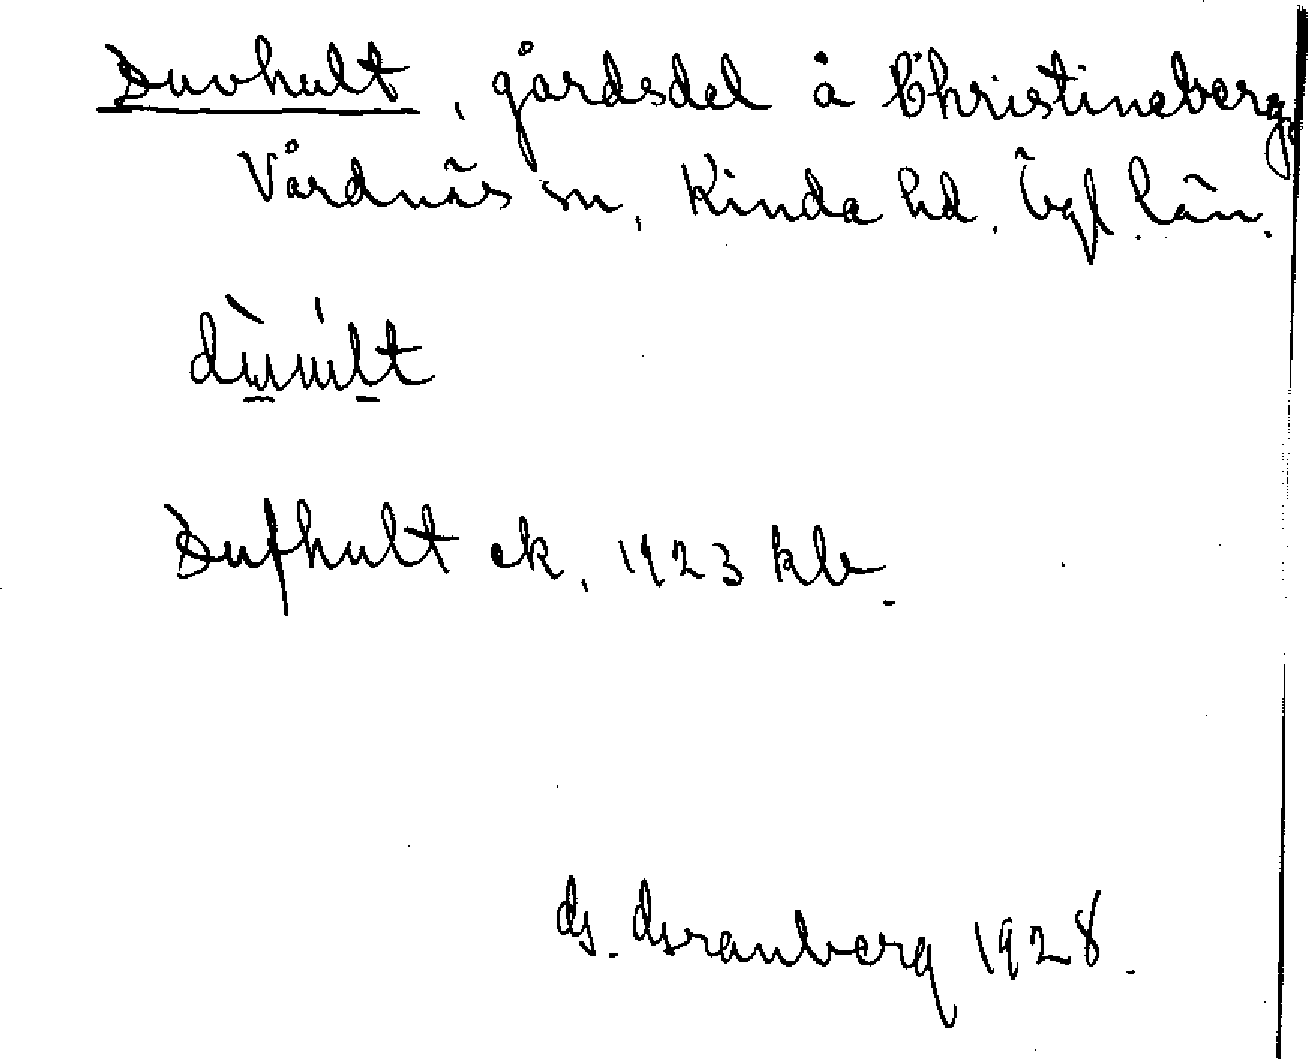 Duvhult, gårdsdel å Christineberg,
Vårdnäs sn, Kinda hd, Ögl. län.
Dufhult ek. 1923 kbr.
1928.